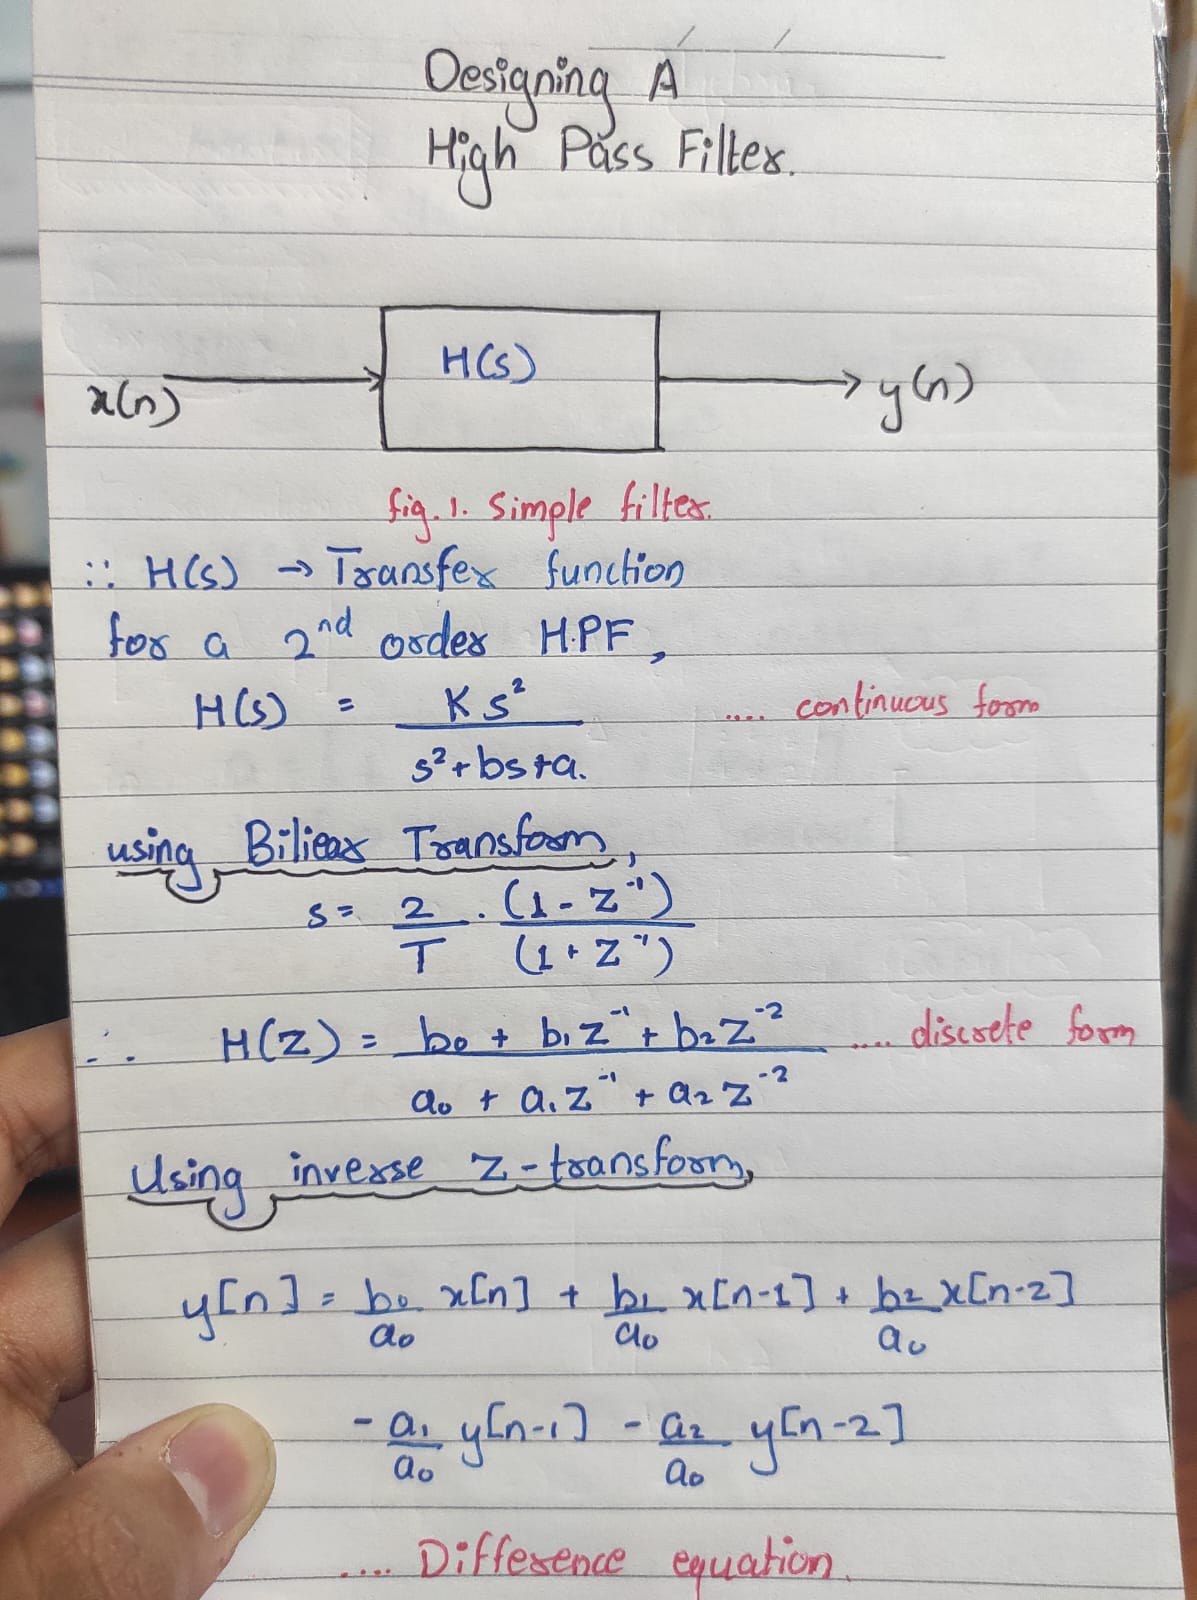 Designing A
High Pass Filter.
x(n)
H(s)
y(n)
fig. 1. Simple filter.
∵ H(s) → Transfer function
for a 2nd order H.P.F,
H(s) = K s² / s² + bs + a. .... continuous form
using Biliear Transform,
s = 2/T . (1 - z⁻¹) / (1 + z⁻¹)
∴ H(Z) = b₀ + b₁z⁻¹ + b₂z⁻² / a₀ + a₁z⁻¹ + a₂z⁻² .... discrete form
Using inverse z-transform,
y[n] = b₀/a₀ x[n] + b₁/a₀ x[n-1] + b₂/a₀ x[n-2]
- a₁/a₀ y[n-1] - a₂/a₀ y[n-2]
.... Difference equation.